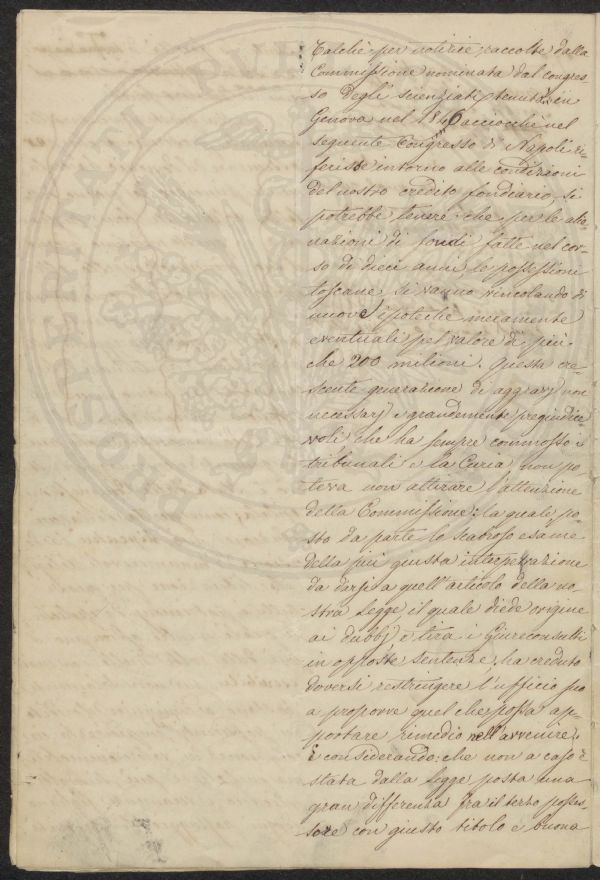 Talchè per notizie raccolte dalla
Commissione nominata dal congres
so degli scienziati tenuto in
Genova nel 1846 acciocchè nel
seguente Congresso di Napoli ri-
ferisse intorno alle condizioni
del nostro credito fondiario, si
potrebbe tenere che per le alie-
nazioni di fondi fatte nel cor-
so di dieci anni le possessioni
toscane si vanno vincolando di
nuove ipoteche meramente
eventuali pel valore di più
che 200 milioni. Questa cre-
scente generazione di aggravj non
necessarj e grandemente pregiudice-
voli che ha sempre commosso i
tribunali e la Curia, non po-
teva non attirare l'attenzione
della Commissione: la quale po-
sto da parte lo scabroso esame
della più giusta interpetrazione
da darsi a quell'articolo della no-
stra Legge il quale diede origine
ai dubbj e tira i Giureconsulti
in opposte sentenze, ha creduto
doversi restringere l'ufficio suo
a proporre quel che possa ap-
portare rimedio nell'avvenire.
E considerando: che non a caso è
stata dalla Legge posta una
gran differenza fra il terzo posses-
sore con giusto titolo e buona
PROSPERITATI